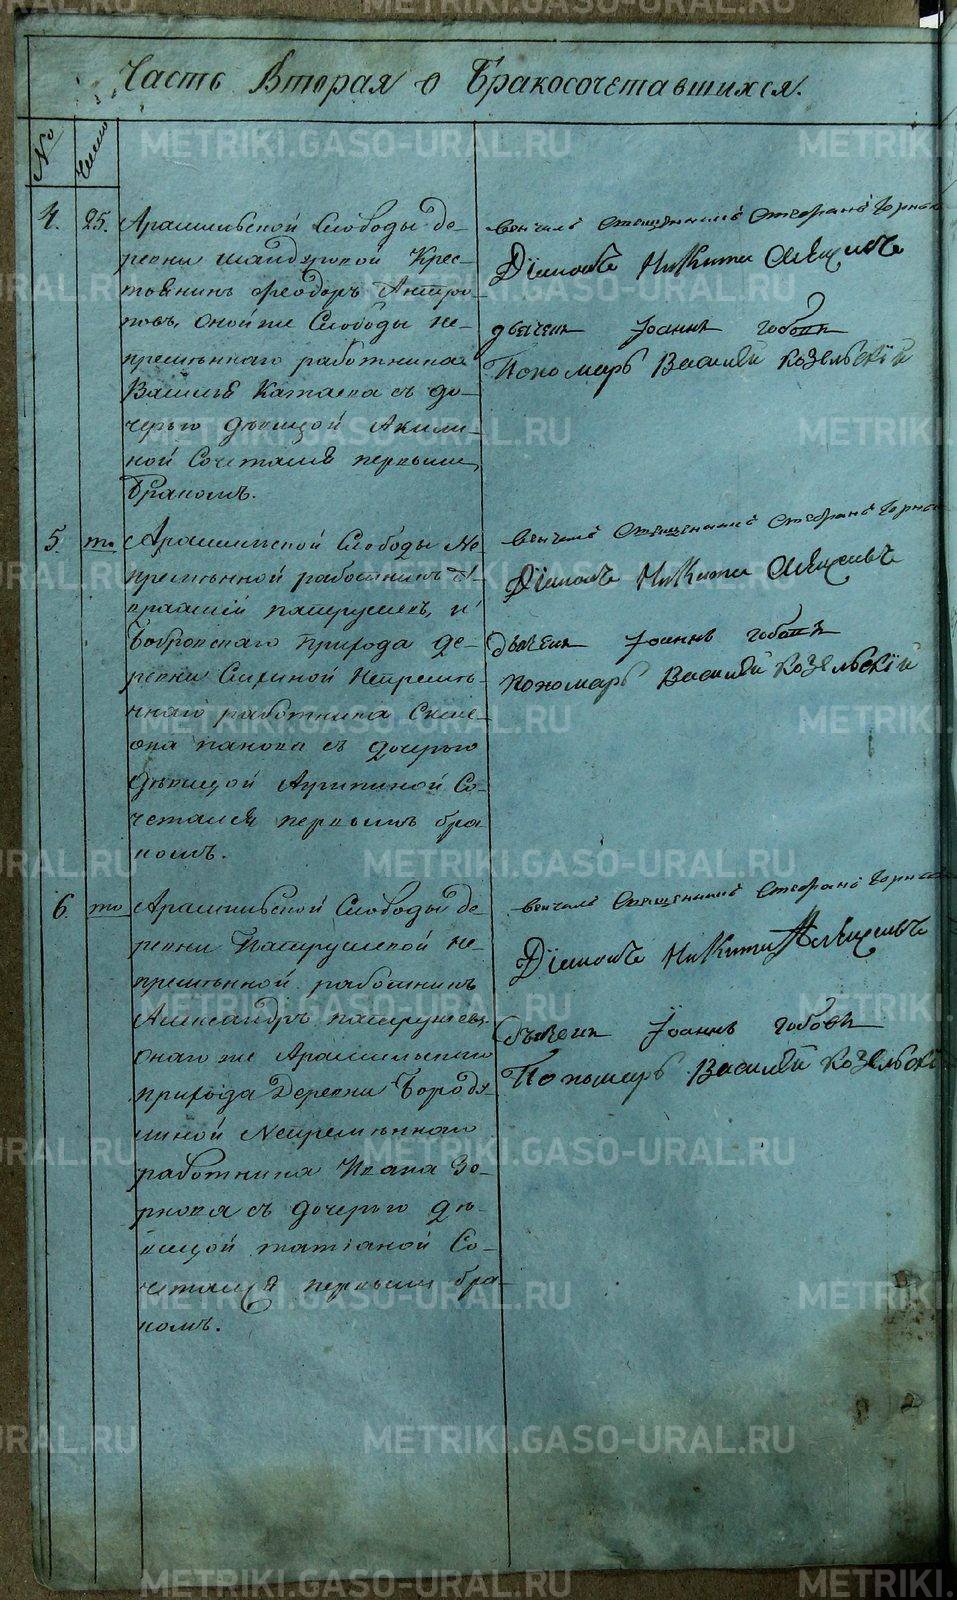 Часть Вторая о Бракосочетавшихся.
№
число
4.
25.
Арамильской Слободы де-
ревни Шандуихой Крес-
тьянинъ Феодоръ Антро-
повъ, оной же Слободы не-
пременнаго работника
Василья Катаева съ до-
черью девицой Акили-
ной Сочетался первымъ
бракомъ.
венчалъ священникъ Стефанъ
Дїаконъ Никита
дьячекъ Іоаннъ
Пономарь Василей Козельскїй
5.
то
Арамильской Слободы Не
пременной работникъ
Патрушевъ, и
Бобровскаго прихода де-
ревни Непремен-
наго работника Симе-
она Панова съ дочерью
девицой Агрипиной Со-
четался первымъ бра
комъ.
венчалъ священникъ Стефанъ
Дїаконъ Никита
дьячекъ Іоаннъ
Пономарь Василей Козельскїй
6.
то
Арамильской Слободы де-
ревни Патрушевой не-
пременной работникъ
Александръ Патрушевъ
онаго же Арамильскаго
прихода Деревни Бороду-
линой Непременнаго
работника Ивана Зо-
ркова съ дочерью де-
вицой Татіаной Со-
четался первымъ бра-
комъ.
венчалъ священникъ Стефанъ
Дїаконъ Никита
дьячекъ Іоаннъ
Пономарь Василей
METRIKI.GASO-URAL.RU